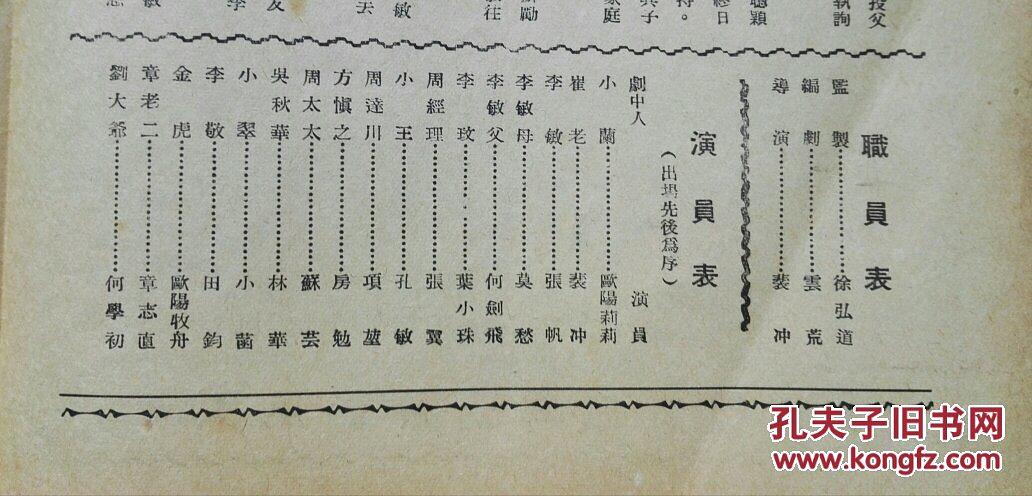 職員表
監製……徐弘道
編劇……雲荒
導演……裴冲
演員表
(出場先後爲序)
劇中人 演員
小蘭……歐陽莉莉
崔老……裴冲
李敏……張帆
李敏母……莫愁
李敏父……何劍飛
李玟……葉小珠
周經理……張翼
小王……孔敏
周達川……項堃
方慎之……房勉
周太太……蘇芸
吳秋華……林華
小翠……小茵
李敬……田鈞
金虎……歐陽牧舟
章老二……章志直
劉大爺……何學初
孔夫子旧书网
www.kongfz.com